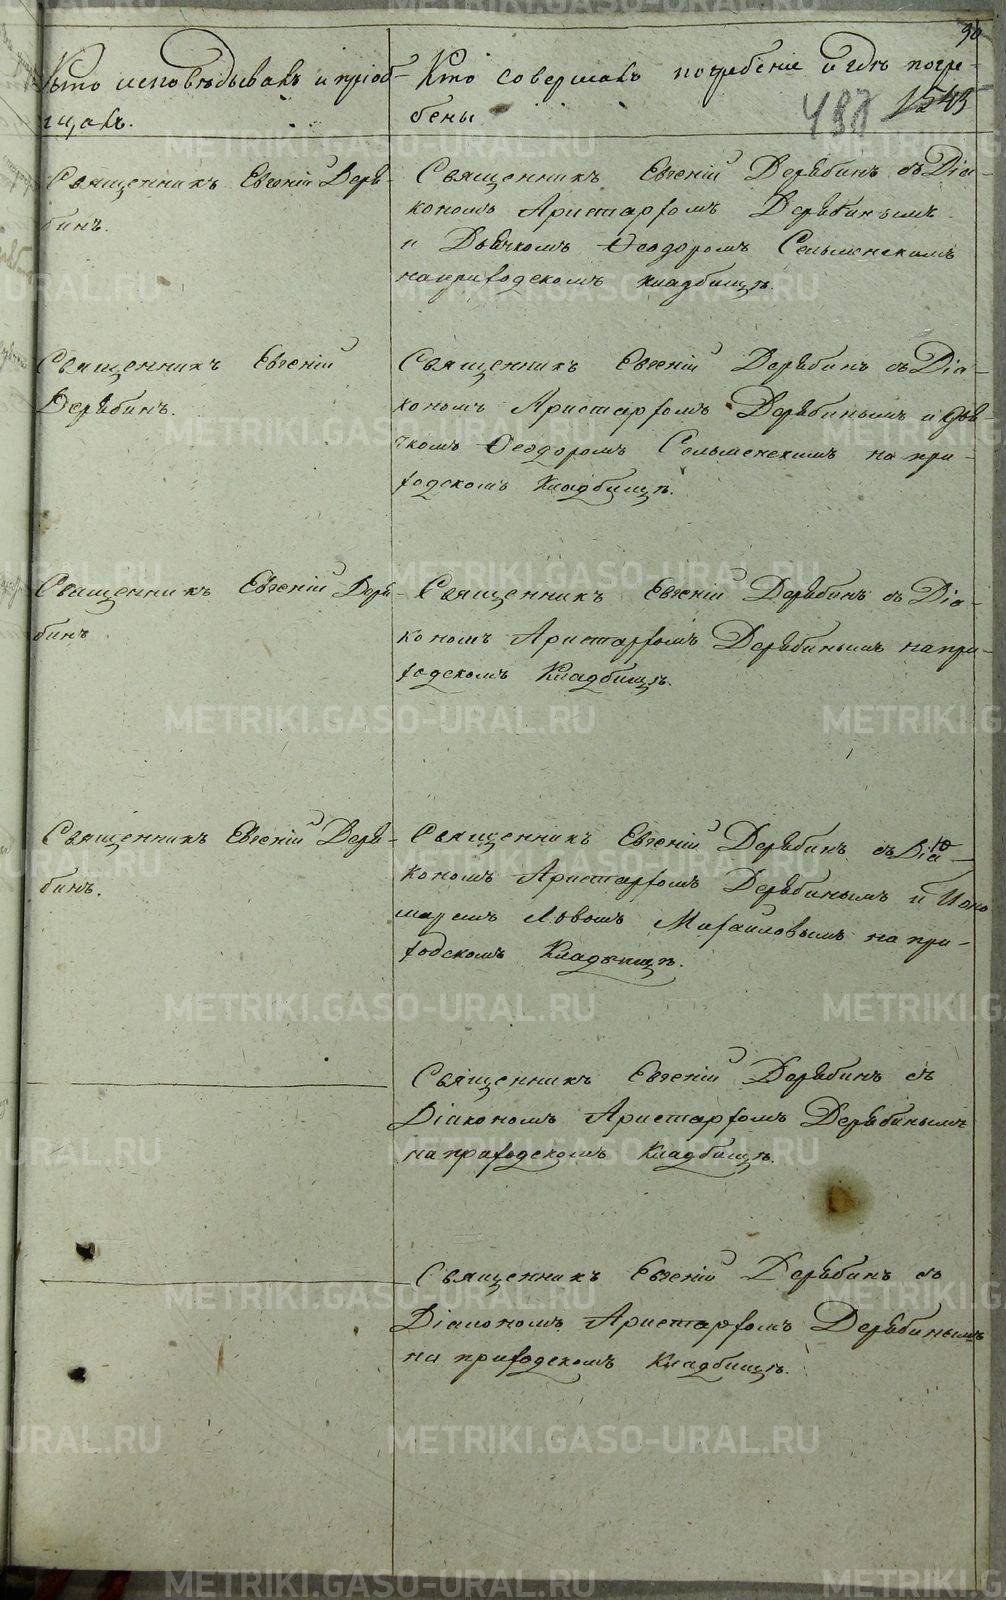 90
Кто исповѣдывалъ и пріоб-
щалъ.
Кто совершалъ погребеніе и гдѣ погре-
бены
487 1543
Священникъ Евгеній Деря-
бинъ.
Священникъ Евгеній Дерябинъ съ Діа-
кономъ Аристархомъ Дерябинымъ
и Дьячкомъ Ѳеодоромъ Сельменскимъ
на приходскомъ кладбищѣ.
Священникъ Евгеній
Дерябинъ.
Священникъ Евгеній Дерябинъ съ Діа-
кономъ Аристархомъ Дерябинымъ и Дья-
чкомъ Ѳеодоромъ Сельменскимъ на при-
ходскомъ Кладбищѣ.
Священникъ Евгеній Деря-
бинъ
Священникъ Евгеній Дерябинъ съ Діа-
кономъ Аристархомъ Дерябинымъ на при-
ходскомъ Кладбищѣ.
Священникъ Евгеній Деря-
бинъ.
Священникъ Евгеній Дерябинъ съ Діа-
кономъ Аристархомъ Дерябинымъ и Поно
маремъ Львомъ Михаиловымъ на при-
ходскомъ Кладбищѣ.
Священникъ Евгеній Дерябинъ съ
Діакономъ Аристархомъ Дерябинымъ
на приходскомъ Кладбищѣ.
Священникъ Евгеній Дерябинъ съ
Діакономъ Аристархомъ Дерябинымъ
на приходскомъ Кладбищѣ.
METRIKI.GASO-URAL.RU